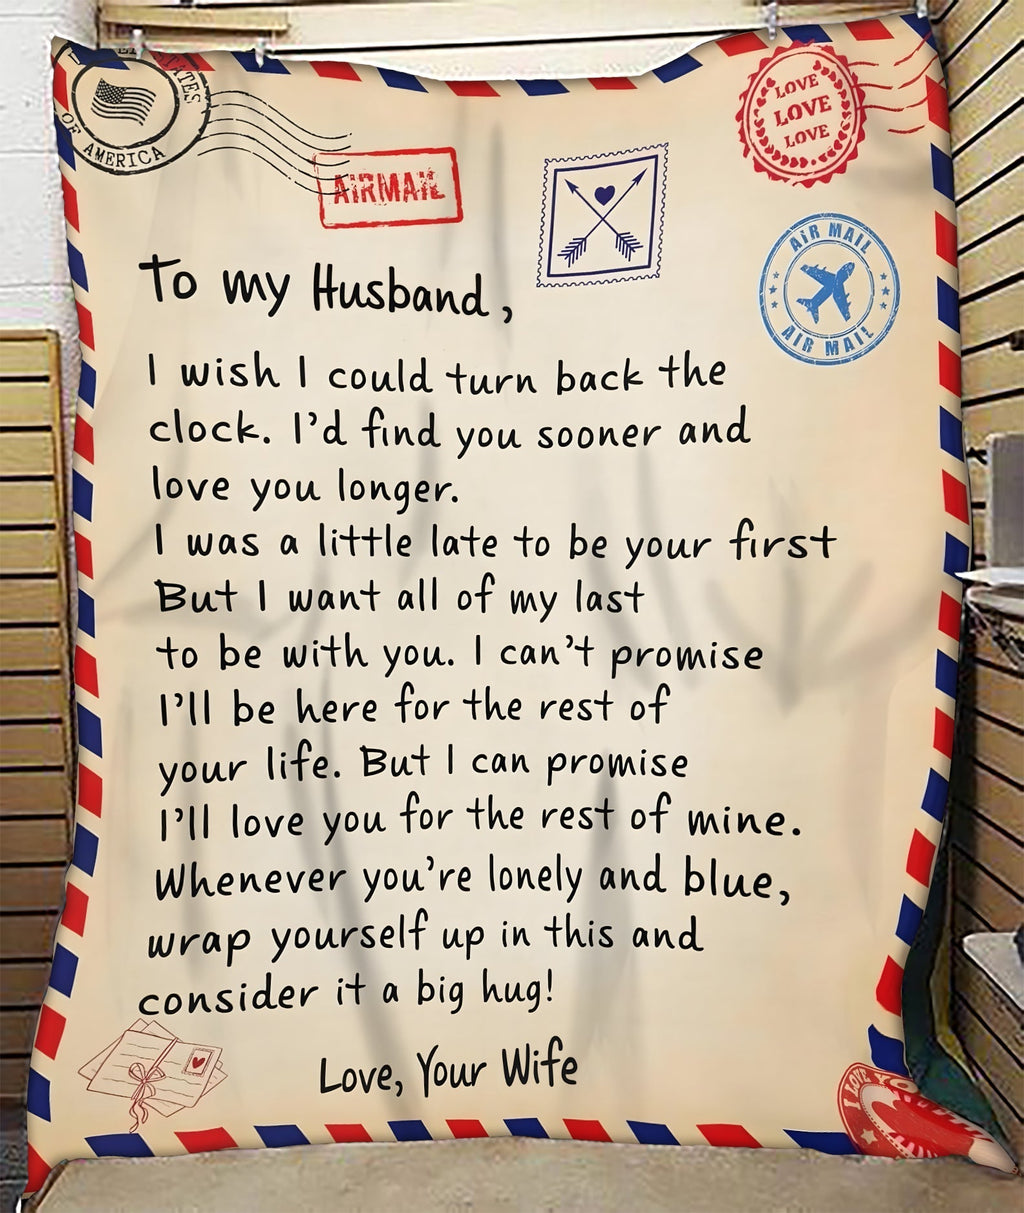 UNITED STATES
OF AMERICA
AIRMAIL
LOVE
LOVE
LOVE
AIR MAIL
AIR MAIL
To my Husband,
I wish I could turn back the
clock. I'd find you sooner and
love you longer.
I was a little late to be your first
But I want all of my last
to be with you. I can't promise
I'll be here for the rest of
your life. But I can promise
I'll love you for the rest of mine.
Whenever you're lonely and blue,
wrap yourself up in this and
consider it a big hug!
Love, Your Wife
I LOVE YOU